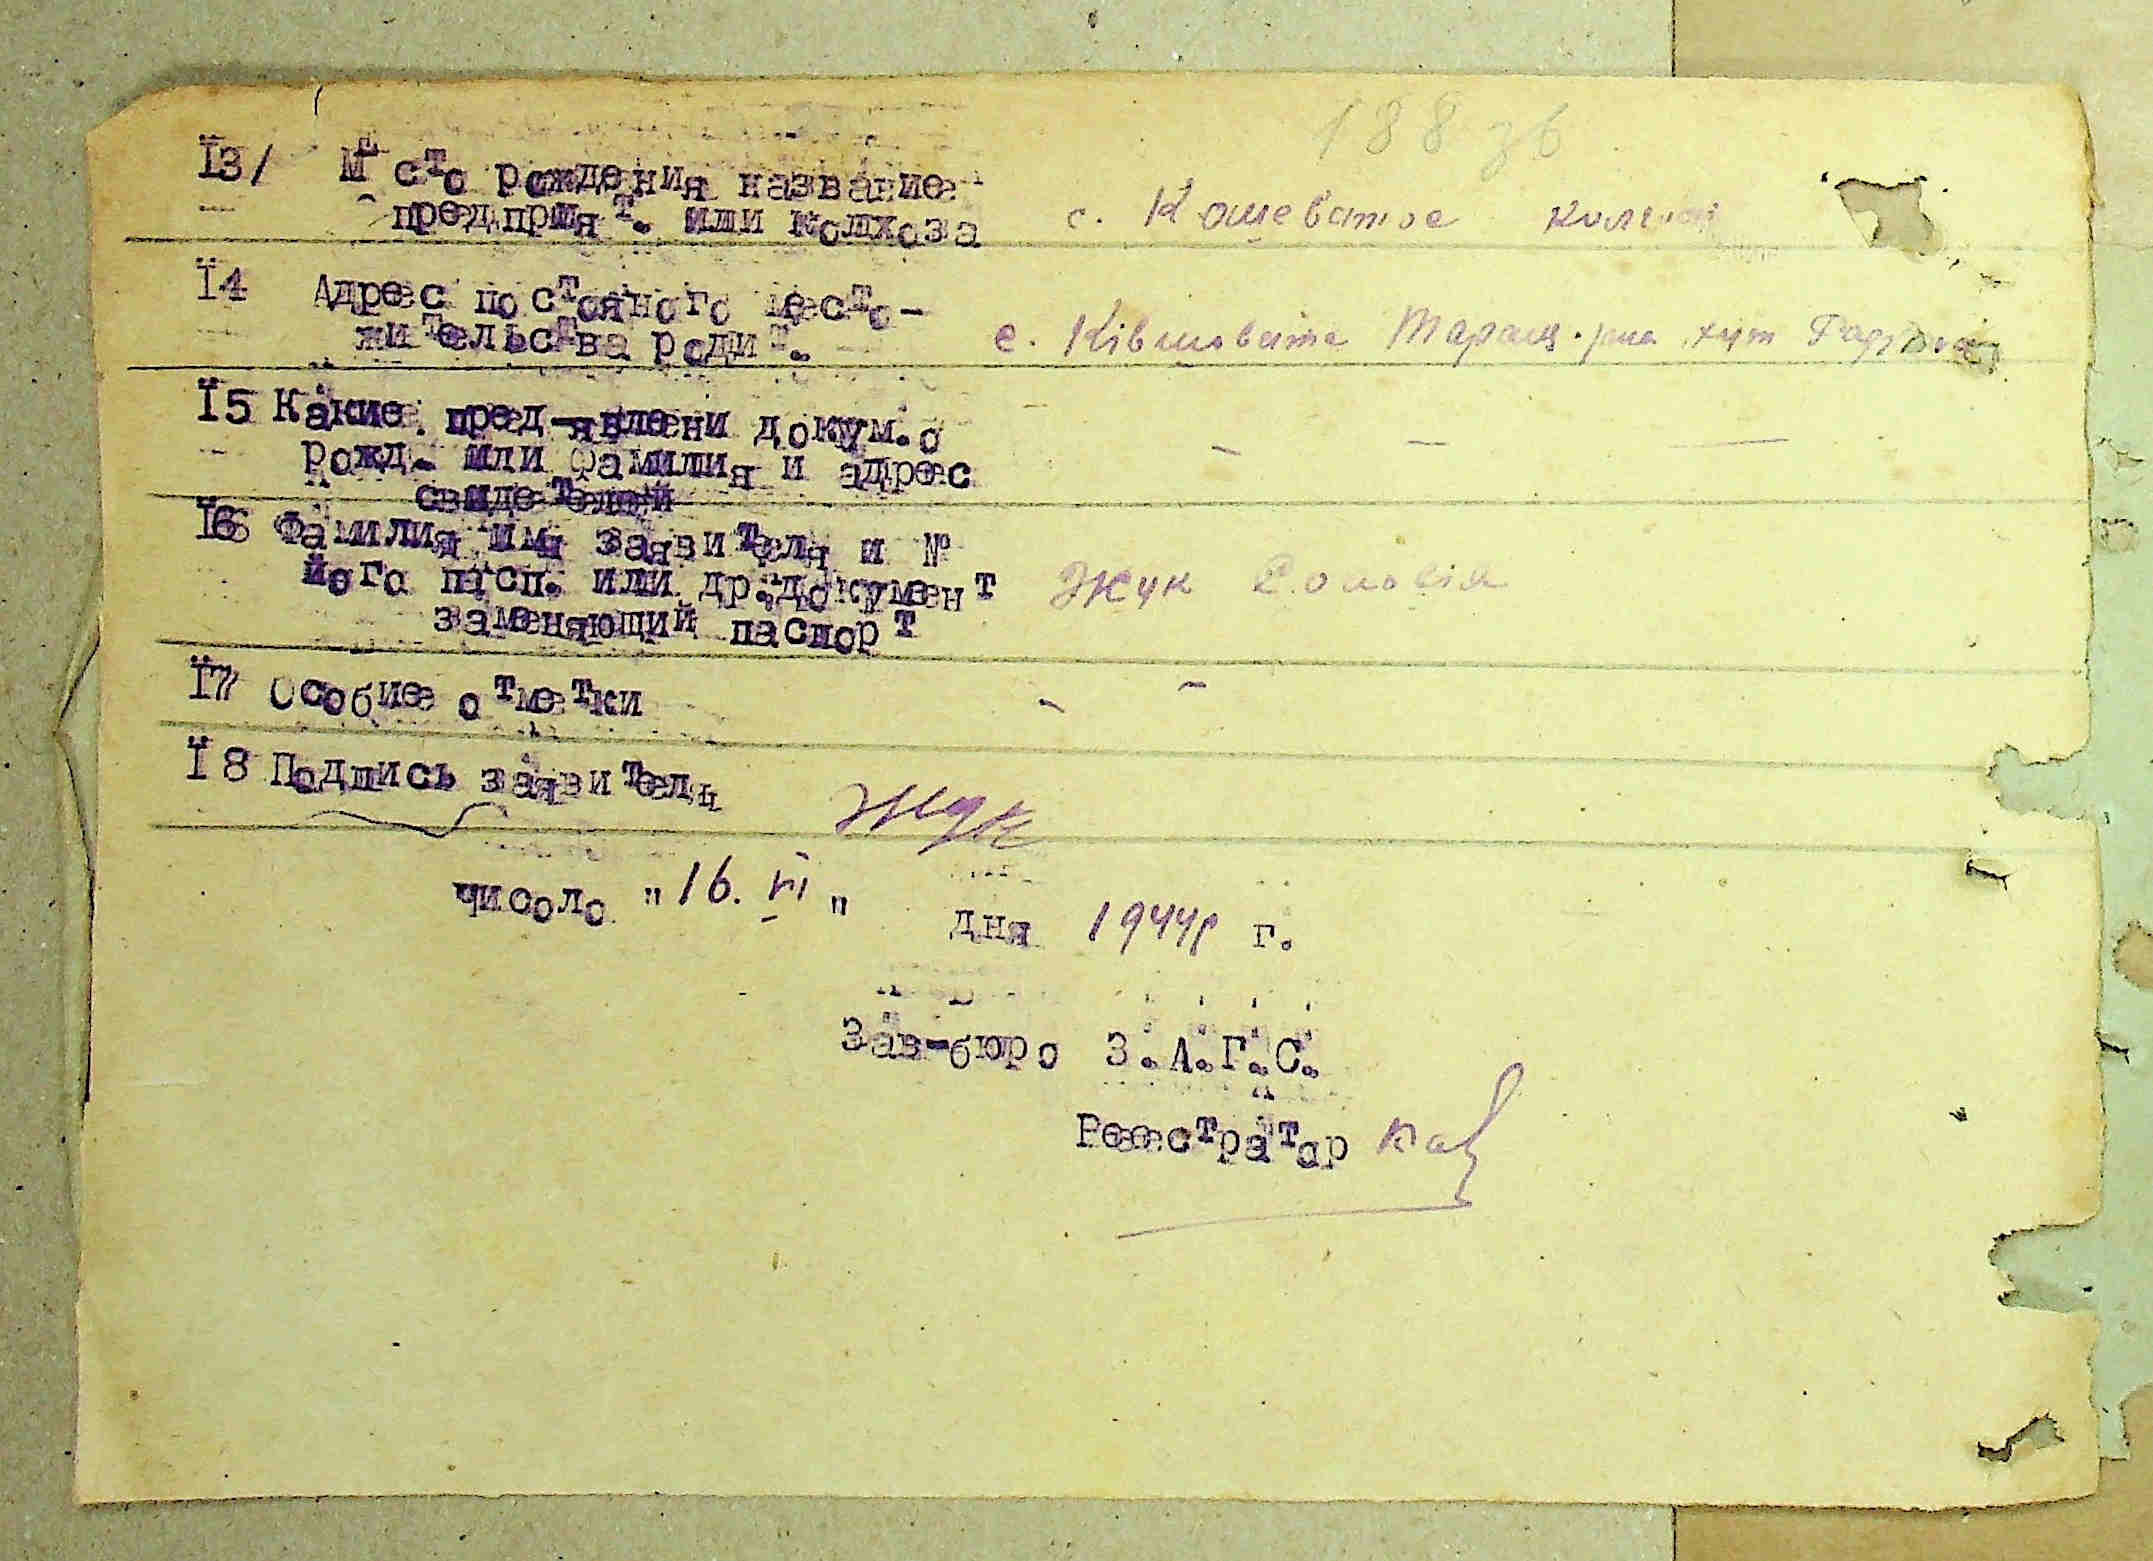 188 зв
Ї3/ Место рождения название
предприят. или колхоза с. Кошеватое колгосп
Ї4 Адрес постояного место-
жительства родит. с. Ківшовата Таращ. р-на хут
Ї5 Какие пред-явлени докум.о
рожд. или фамилия и адрес — — —
свидетелей
Ї6 Фамилия имя заявителя и №
його пасп. или др.документ Жук
заменяющий паспорт
Ї7 Особие отметки — —
Ї8 Подпись заявителя Жук
числоо "16. VI" дня 1944р г.
Зав-бюро З.А.Г.С.
Реестратор